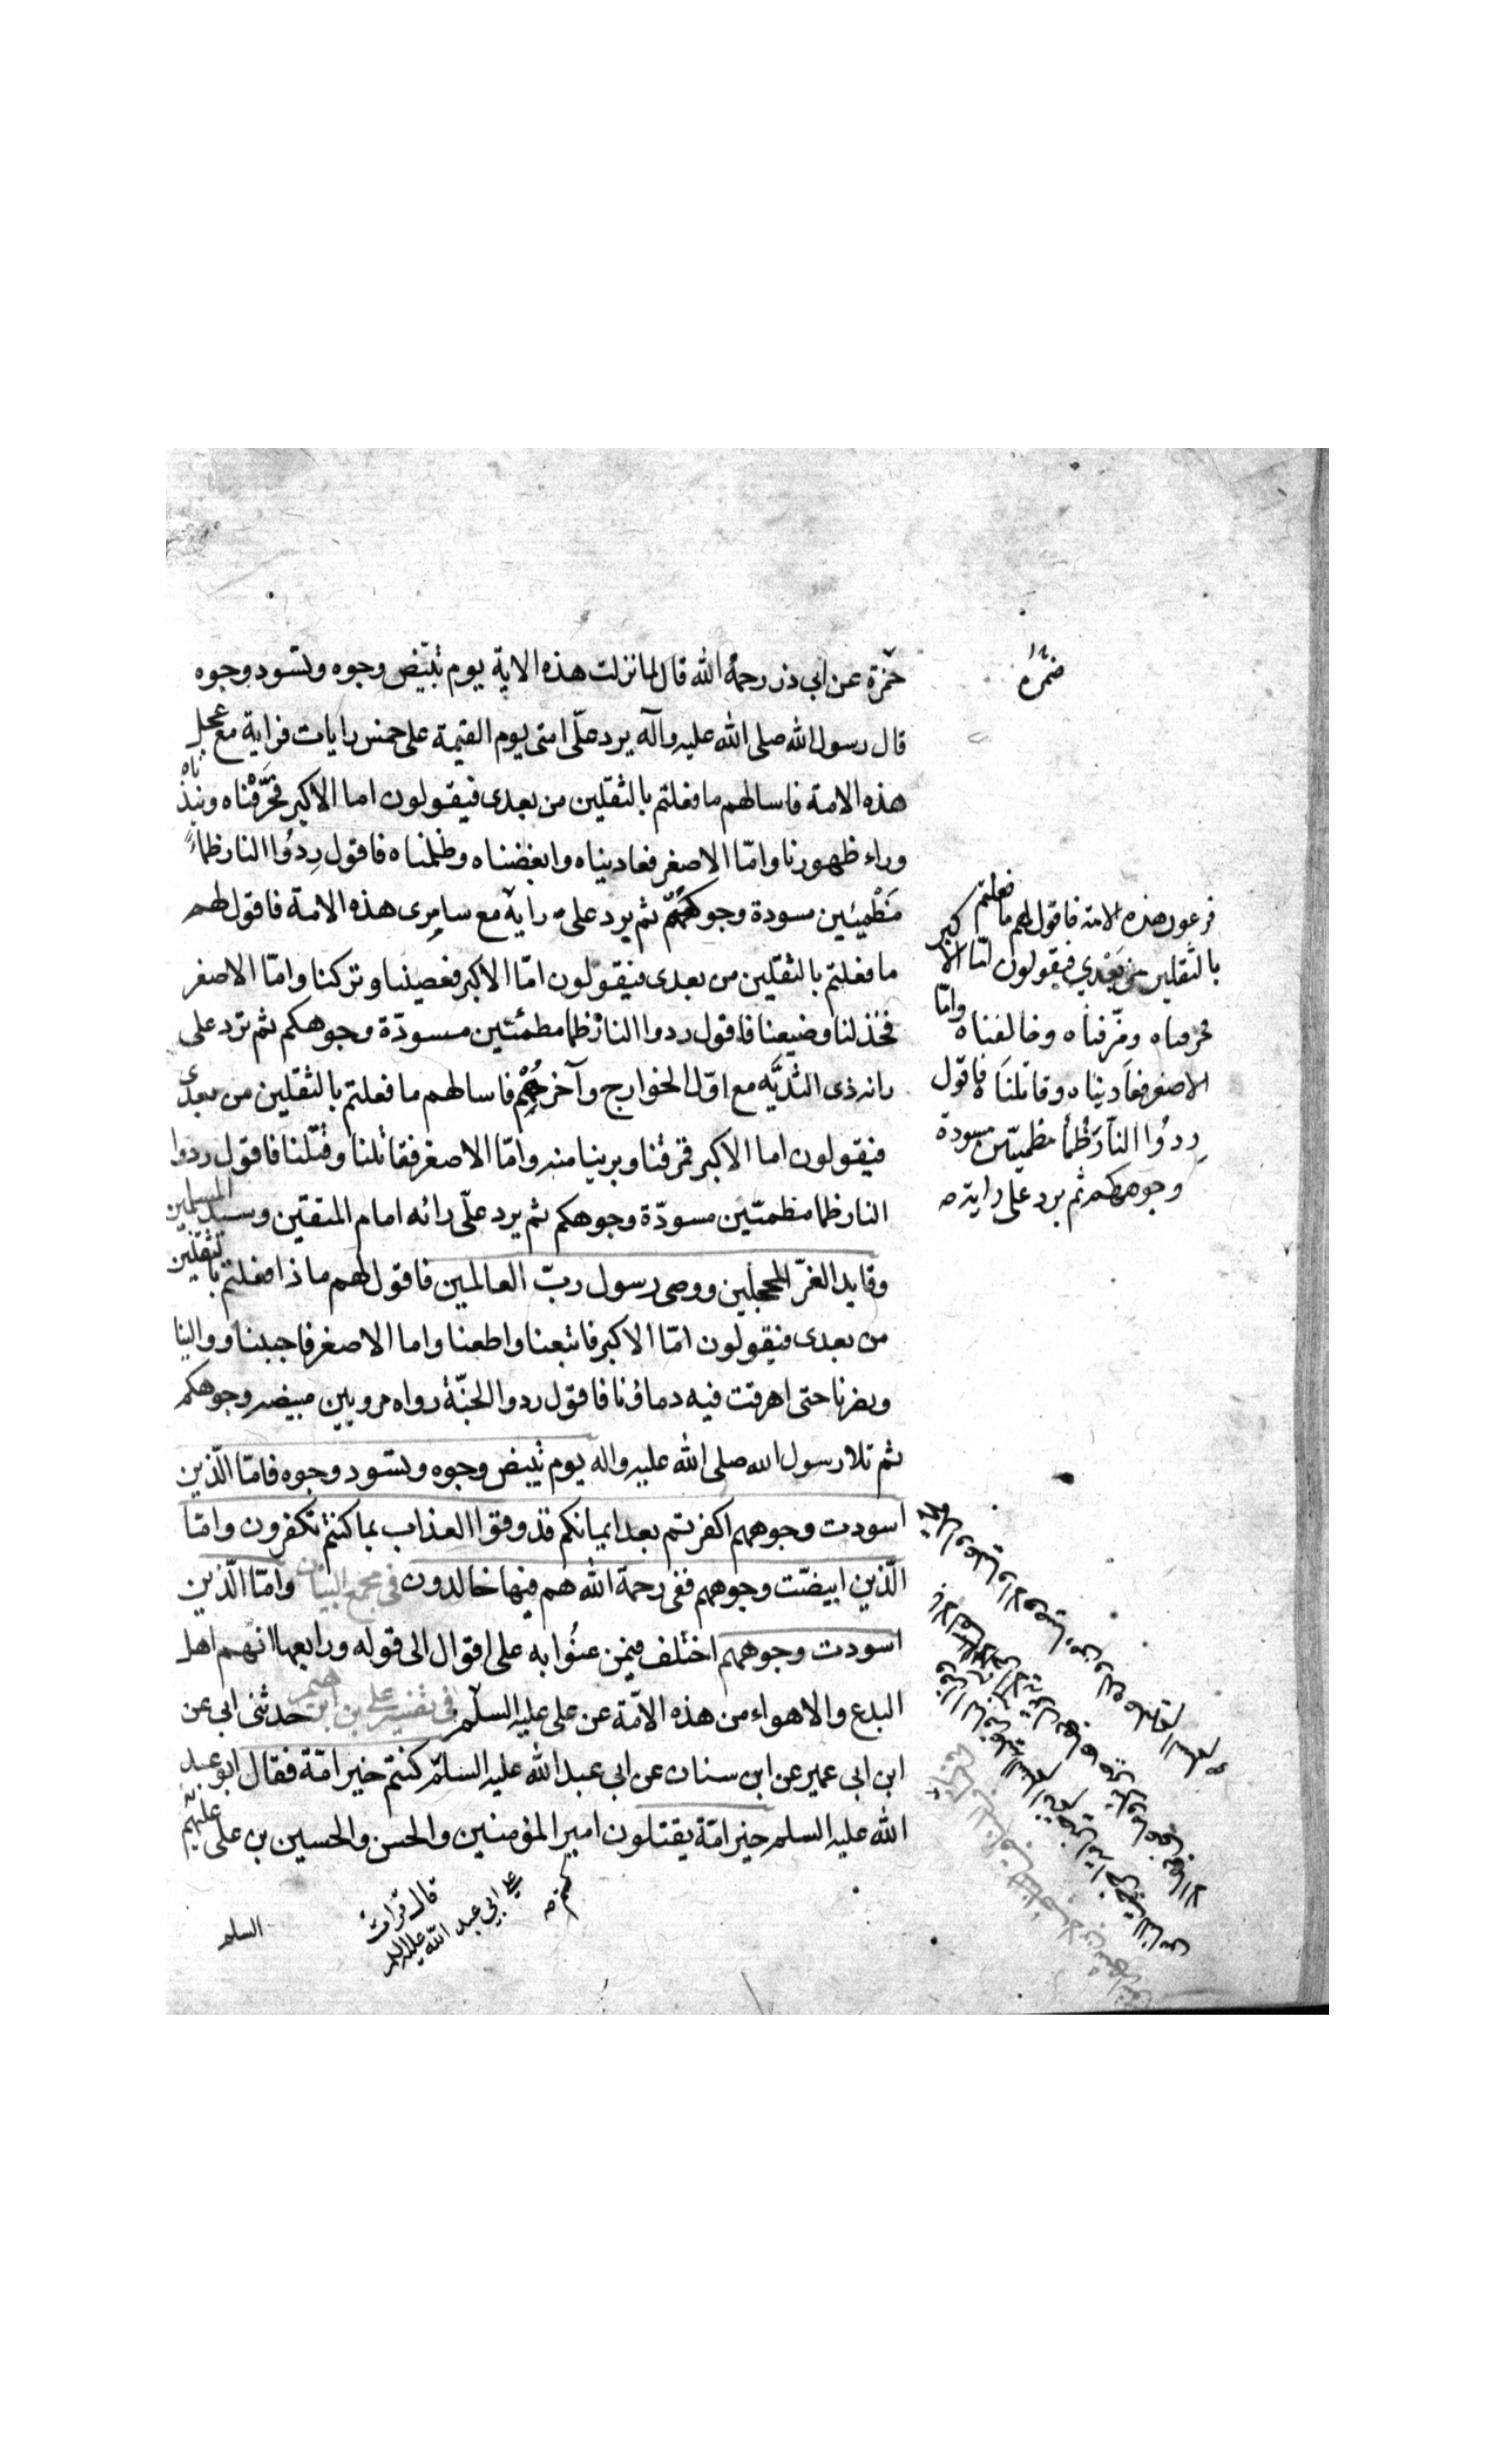 حمزة عن ابى ذر رحمة الله قال لما نزلت هذه الاية يوم تبيض وجوه وتسود وجوه
قال رسول الله صلى الله عليه وآله يرد علّى امتى يوم القيمة على خمس رايات فراية مع عجل
هذه الامة فاسالهم ما فعلتم بالثقلين من بعدى فيقولون اما الاكبر فحرّفناه ونبذناه
وراء ظهورنا وامّا الاصغر فعاديناه وابغضناه وظلمناه فاقول رِدُوا النار ظماءً
مظمئين مسودة وجوهكم ثم يرد علىّ راية مع سامرى هذه الامة فاقول لهم
ما فعلتم بالثقلين من بعدى فيقولون امّا الاكبر فعصينا وتركنا وامّا الاصغر
فخذلنا وضيعنا فاقول ردوا النار ظما مظمئين مسودّة وجوهكم ثم ترد على
رائه ذى الثديّه مع اوّل الخوارج وآخرهم فاسالهم ما فعلتم بالثقلين من بعدى
فيقولون اما الاكبر فمزقنا وبرينا منه وامّا الاصغر فقاتلنا وقتلنا فاقول ردوا
النار ظما مظمئين مسودّة وجوهكم ثم يرد علّى رائه امام المتقين وسيد المسلمين
وقايد الغرّ المحجلين ووصى رسول ربّ العالمين فاقول لهم ما ذا فعلتم بالثقلين
من بعدى فيقولون امّا الاكبر فاتبعنا واطعنا واما الاصغر فاحببنا ووالينا
ونصرنا حتى اهرقت فيه دماؤنا فاقول ردوا الجنّة رواه مرويين مبيضه وجوهكم
ثم تلا رسول الله صلى الله عليه واله يوم تبيض وجوه وتسود وجوه فامّا الّذين
اسودت وجوههم اكفرتم بعد ايمانكم فذوقوا العذاب بما كنتم تكفرون وامّا
الّذين ابيضّت وجوههم ففى رحمة الله هم فيها خالدون فى مجمع البيان وامّا الّذين
اسودت وجوههم اختلف فيمن عنُوا به على اقوال الى قوله ورابعها انّهم اهل
البدع والاهواء من هذه الامّة عن على عليه السلم فى تفسير على بن ابرهيم حدثنى ابى عن
ابن ابى عمير عن ابن سنان عن ابى عبد الله عليه السلم كنتم خير امّة فقال ابو عبد
الله عليه السلم خير امّة يقتلون امير المؤمنين والحسن والحسين بن على عليهم
السلم
قال قرات
على ابي عبد الله عليه السلم
كنتم صه
ضمرة
فرعون هذه الامة فاقول لهم ما فعلتم
بالثقلين من بعدي فيقولون امّا الاكبر
فحرقناه ومزّقناه وخالفناه وامّا
الاصغر فعاديناه وقاتلناه فاقول
رِدوُا النار ظُمأ مظميئين مسودة
وجوهكم ثم يرد على راية صه